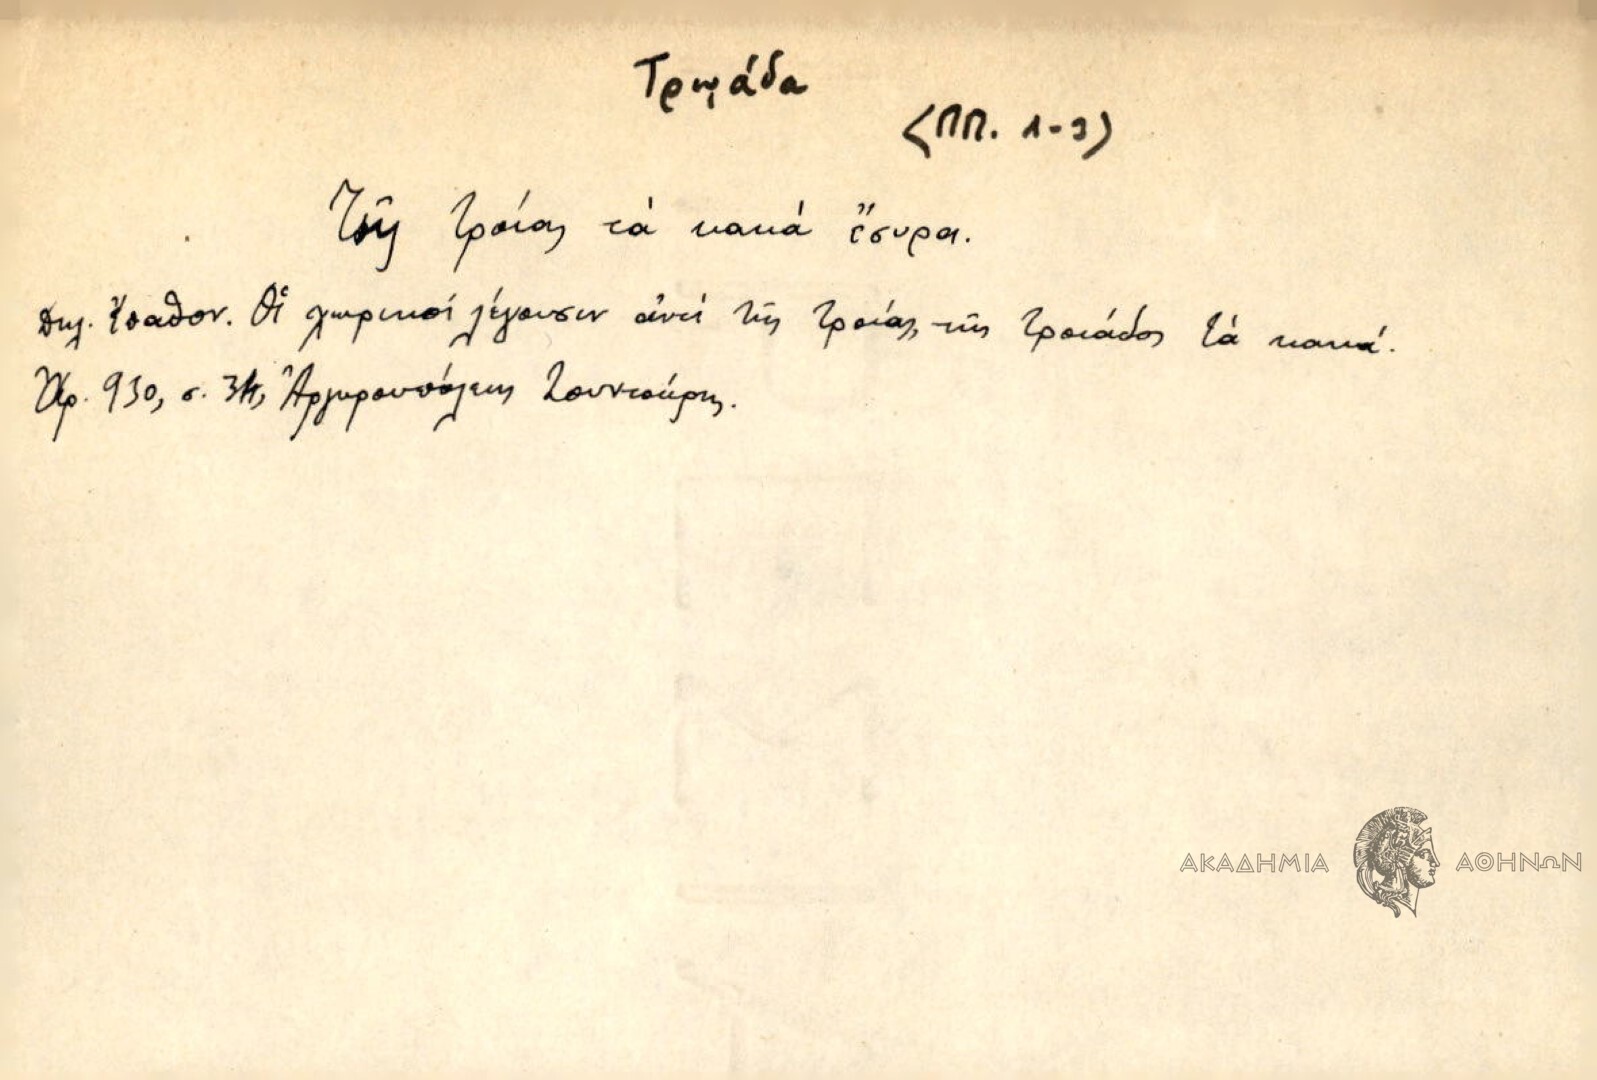 Τρῳάδα
(ΠΠ. 1-3)
Τῆς Τροίας τὰ κακὰ ἔσυρα.
Δηλ. ἔπαθον. Οἱ χωρικοί λέγουσιν ἀντί τῆς Τροίας, τῆς Τροιάδος τὰ κακά.
Χρ. 930, σ. 34, Ἀργυρουπόλεως
ΑΚΑΔΗΜΙΑ ΑΘΗΝΩΝ